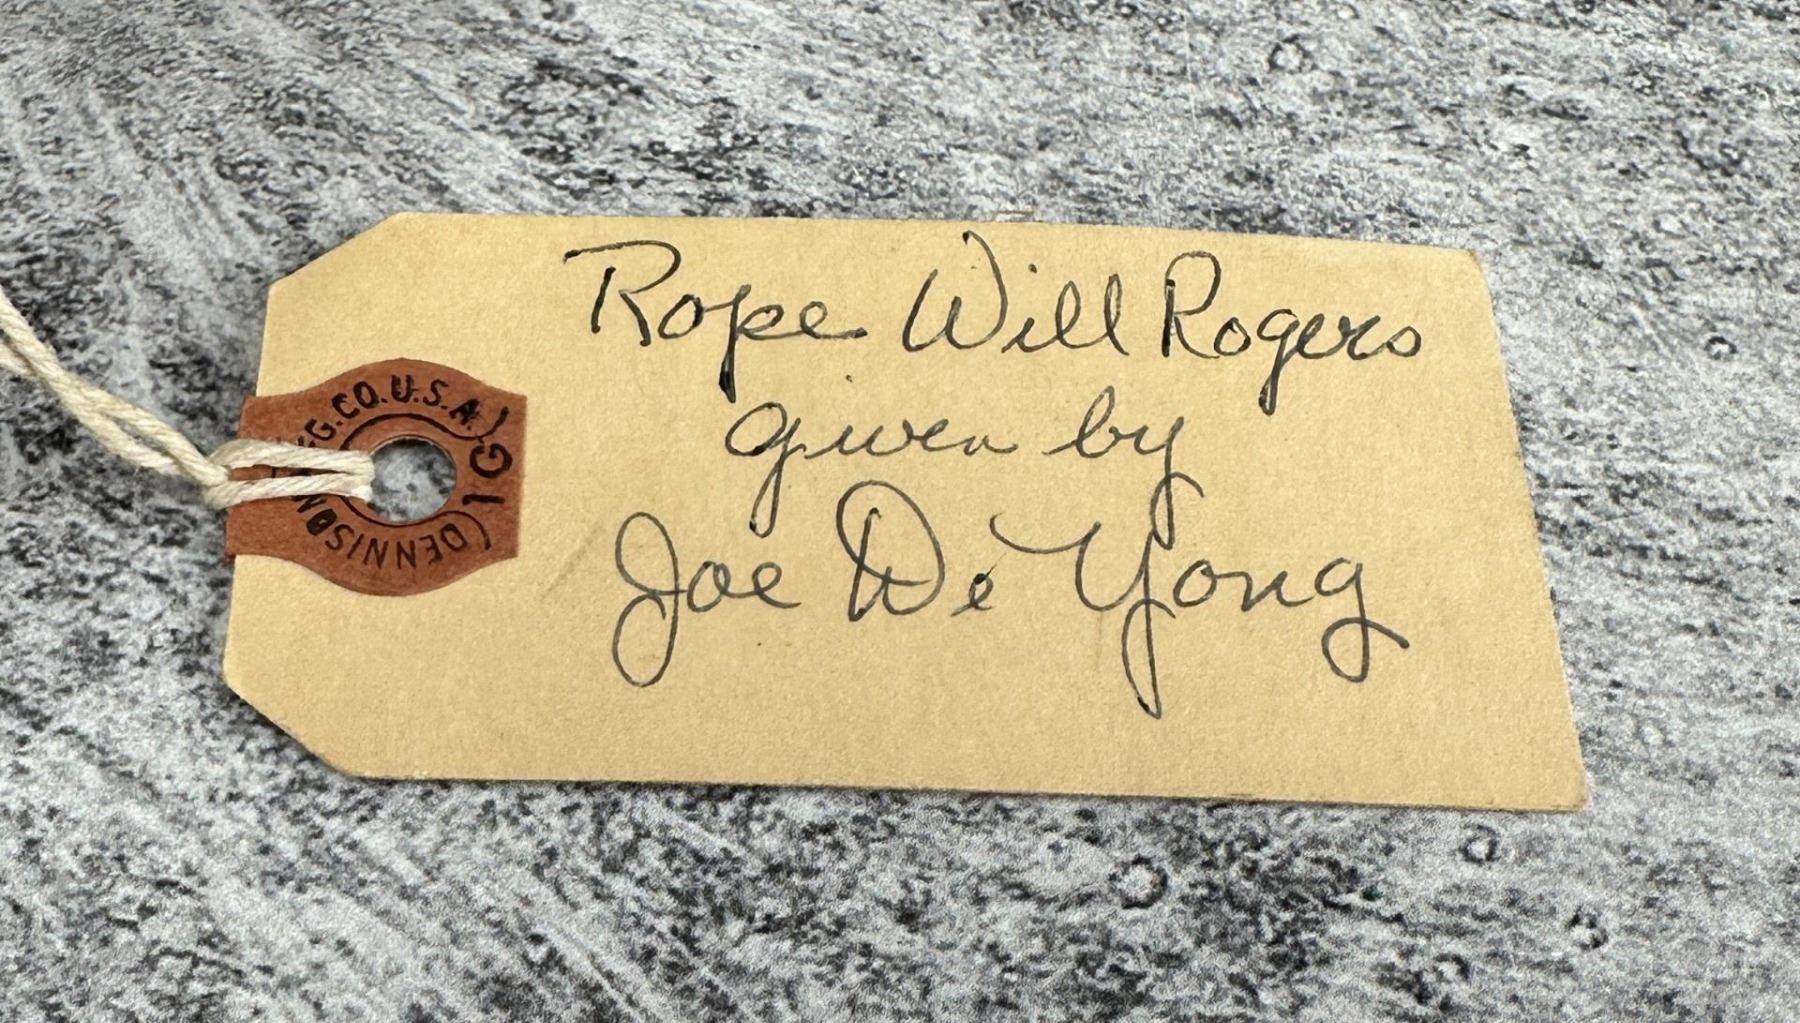 Rope Will Rogers
given by
Joe De Yong
DENNISON MFG.CO.U.S.A.
1G